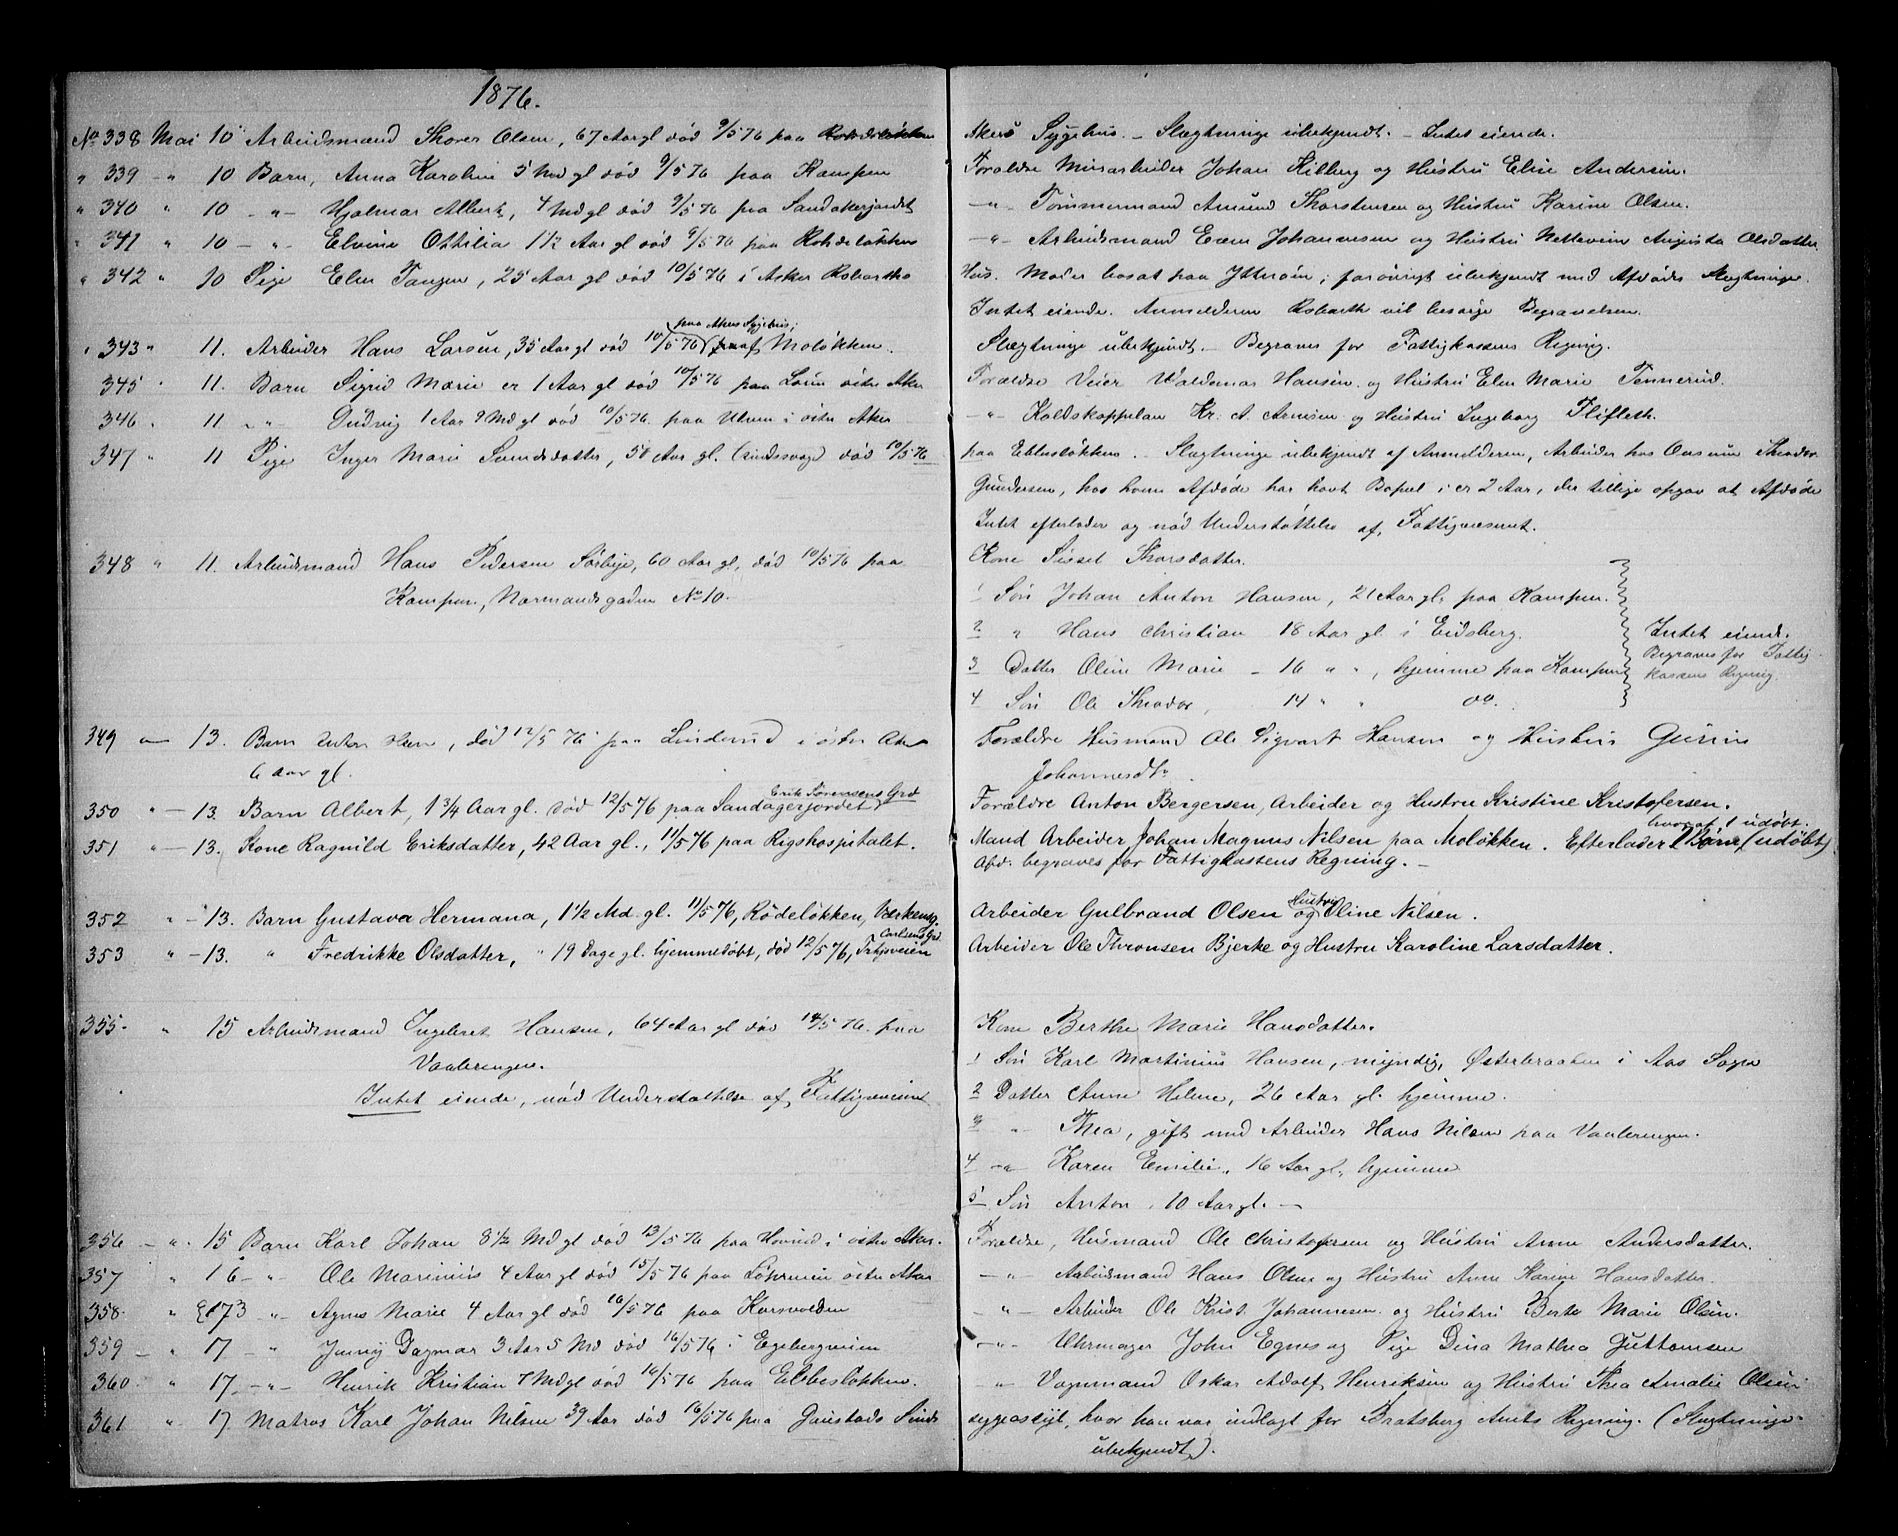 1876.
No 338 Mai 10 Arbeidsmand Thorer Olsen, 67 Aar gl død 9/5 76 paa Rodeløkken Akers Sygehus. – Slægtninge ubekjendt. – Intet eiende.
" 339 " 10 Barn, Anna Karoline 5 Md gl død 9/5 76 paa Kampen Forældre Murarbeider Johan Kilberg og Hustru Elise Andersen.
" 340 " 10 – " – Hjalmar Albert, 4 Md gl død 9/5 76 paa Sandakerjordet – " – Tømmermand Amund Thorstensen og Hustru Karine Olsen.
" 341 " 10 – " – Elvine Othilia 1 1/2 Aar gl død 9/5 76 paa Rodeløkken – " – Arbeidsmand Johannesen og Hustru Augusta Olsdatter.
" 342 " 10 Pige Elen Tangen, 25 Aar gl død 10/5 76 i Asker Robarths Hus. Moder bosat paa Ytterøen; forøvrigt ubekjendt med Afdødes Slægtninge.
Intet eiende. Anmelderen Robarth vil besørge Begravelsen.
paa Akers Sygehus;
" 343 " 11. Arbeider Hans Larsen, 35 Aar gl død 10/5 76 af Moløkken. Slægtninge ubekjendt. – Begraves for Fattigkassens Regning.
345 " 11. Barn Sigrid Marie er 1 Aar gl død 10/5 76 paa Løren østre Aker Forældre Veier Waldemar Hansen og Hustru Elen Marie Tennerud.
346 " 11 " – Ludvig 1 Aar 9 Md gl død 10/5 76 paa Ulven i østre Aker – " – Koldskappelan Kr. A. Arnesen og Hustru Ingeborg Flifleth.
347 " 11 Pige Inger Marie Svendsdatter, 50 Aar gl. (sindssvag) død 10/5 76 paa Ebbesløkken. – Slægtninge ubekjendt af Anmelderen, Arbeider hos Onsum Theodor
Gundersen, hos hvem Afdøde har havt Bopæl i er 2 Aar, der tillige opgav at Afdøde
Intet efterlader og nød Understøttelse af Fattigvæsenet.
348 " 11. Arbeidsmand Hans Pedersen Sørbye, 60 Aar gl, død 10/5 76 paa Kone Sissel Thorsdatter.
Kampen, Normandsgaden No 10. 1 Søn Johan Anton Hansen, 21 Aar gl. paa Kampen.
2 " Hans Christian 18 Aar gl. i Eidsberg. Intet eiende.
3 Datter Oline Marie – 16 " " , hjemme paa Kampen Begraves for Fattigkassens Regning.
4 Søn Ole Theodor, 14 " " do.
349 – 13. Barn Anton, død 12/5 76 paa Linderud i østre Aker Forældre Husmand Ole Sigvart Hansen og Hustru Gurine
6 Aar gl. Johannesdtr.
Erik Sørensens Grd
350 " – 13. Barn Albert, 1 3/4 Aar gl. død 12/5 76 paa Sandagerjordet Forældre Anton Bergersen, Arbeider og Hustru Kristine Kristofersen.
hvoraf 1 udøbt.
351 " – 13. Kone Ragnild Eriksdatter, 42 Aar gl., 11/5 76 paa Rigshospitalet. Mand Arbeider Johan Magnus Nilsen paa Moløkken. Efterlader Børn (udøbt)
Afd: begraves for Fattigkassens Regning. –
352 " – 13. Barn Gustava Hermana, 1 1/2 Md. gl. 11/5 76, Rødeløkken, Værkensg. Arbeider Gulbrand Olsen og Hustru Oline Nilsen.
Carlsens Grd
353 " – 13. " Fredrikke Olsdatter, " 19 Dage gl. hjemmedøbt, død 12/5 76, Arbeider Ole Thronsen Bjerke og Hustru Karoline Larsdatter.
355. " 15 Arbeidsmand Ingebret Hansen, 64 Aar gl død 14/5 76 paa Kone Berthe Marie Hansdatter.
Vaalerengen. 1 Søn Karl Martinius Hansen, myndig, Østerbraaten i Aas Sogn
Intet eiende, nød Understøttelse af Fattigvæsenet 2 Datter Anne Helene, 26 Aar gl. hjemme.
3 " Thea, gift med Arbeider Hans Nilsen paa Vaalerengen.
4 – " – Karen Emilie, 16 Aar gl., hjemme
5 Søn Anton, 10 Aar gl. –
356 – " 15 Barn Karl Johan 8 1/2 Md gl død 13/5 76 paa Hovind i østre Aker. Forældre, Husmand Ole Christophersen og Hustru Anne Andersdatter.
357 " 16 – " – Ole Marinius 4 Aar gl død 15/5 76 paa Løhren i østre Aker – " – Arbeidsmand Hans Olsen og Hustru Anne Karine Hansdatter.
358. " 17 – " – Agnes Marie 4 Aar gl død 16/5 76 paa Korsvolden – " – Arbeider Ole Krist. Johannesen og Hustru Berte Marie Olsen.
359 – " 17 " Jenny Dagmar 3 Aar 5 Md død 16/5 76 i Egebergveien – " – Uhrmager John Egnes og Pige Dina Mathea Guttomsen
360. " 17. – " – Henrik Kristian 7 Md gl død 16/5 76 paa Ebbesløkken. " Vognmand Oskar Adolf Henriksen og Hustru Thea Amalie Olsen
361 " 17. Matros Karl Johan Nilsen 39 Aar død 16/5 76 paa Gaustads Sinds sygeasyl, hvor han var indlagt for Bratsberg Amts Regning. (Slægtninge
ubekjendt).